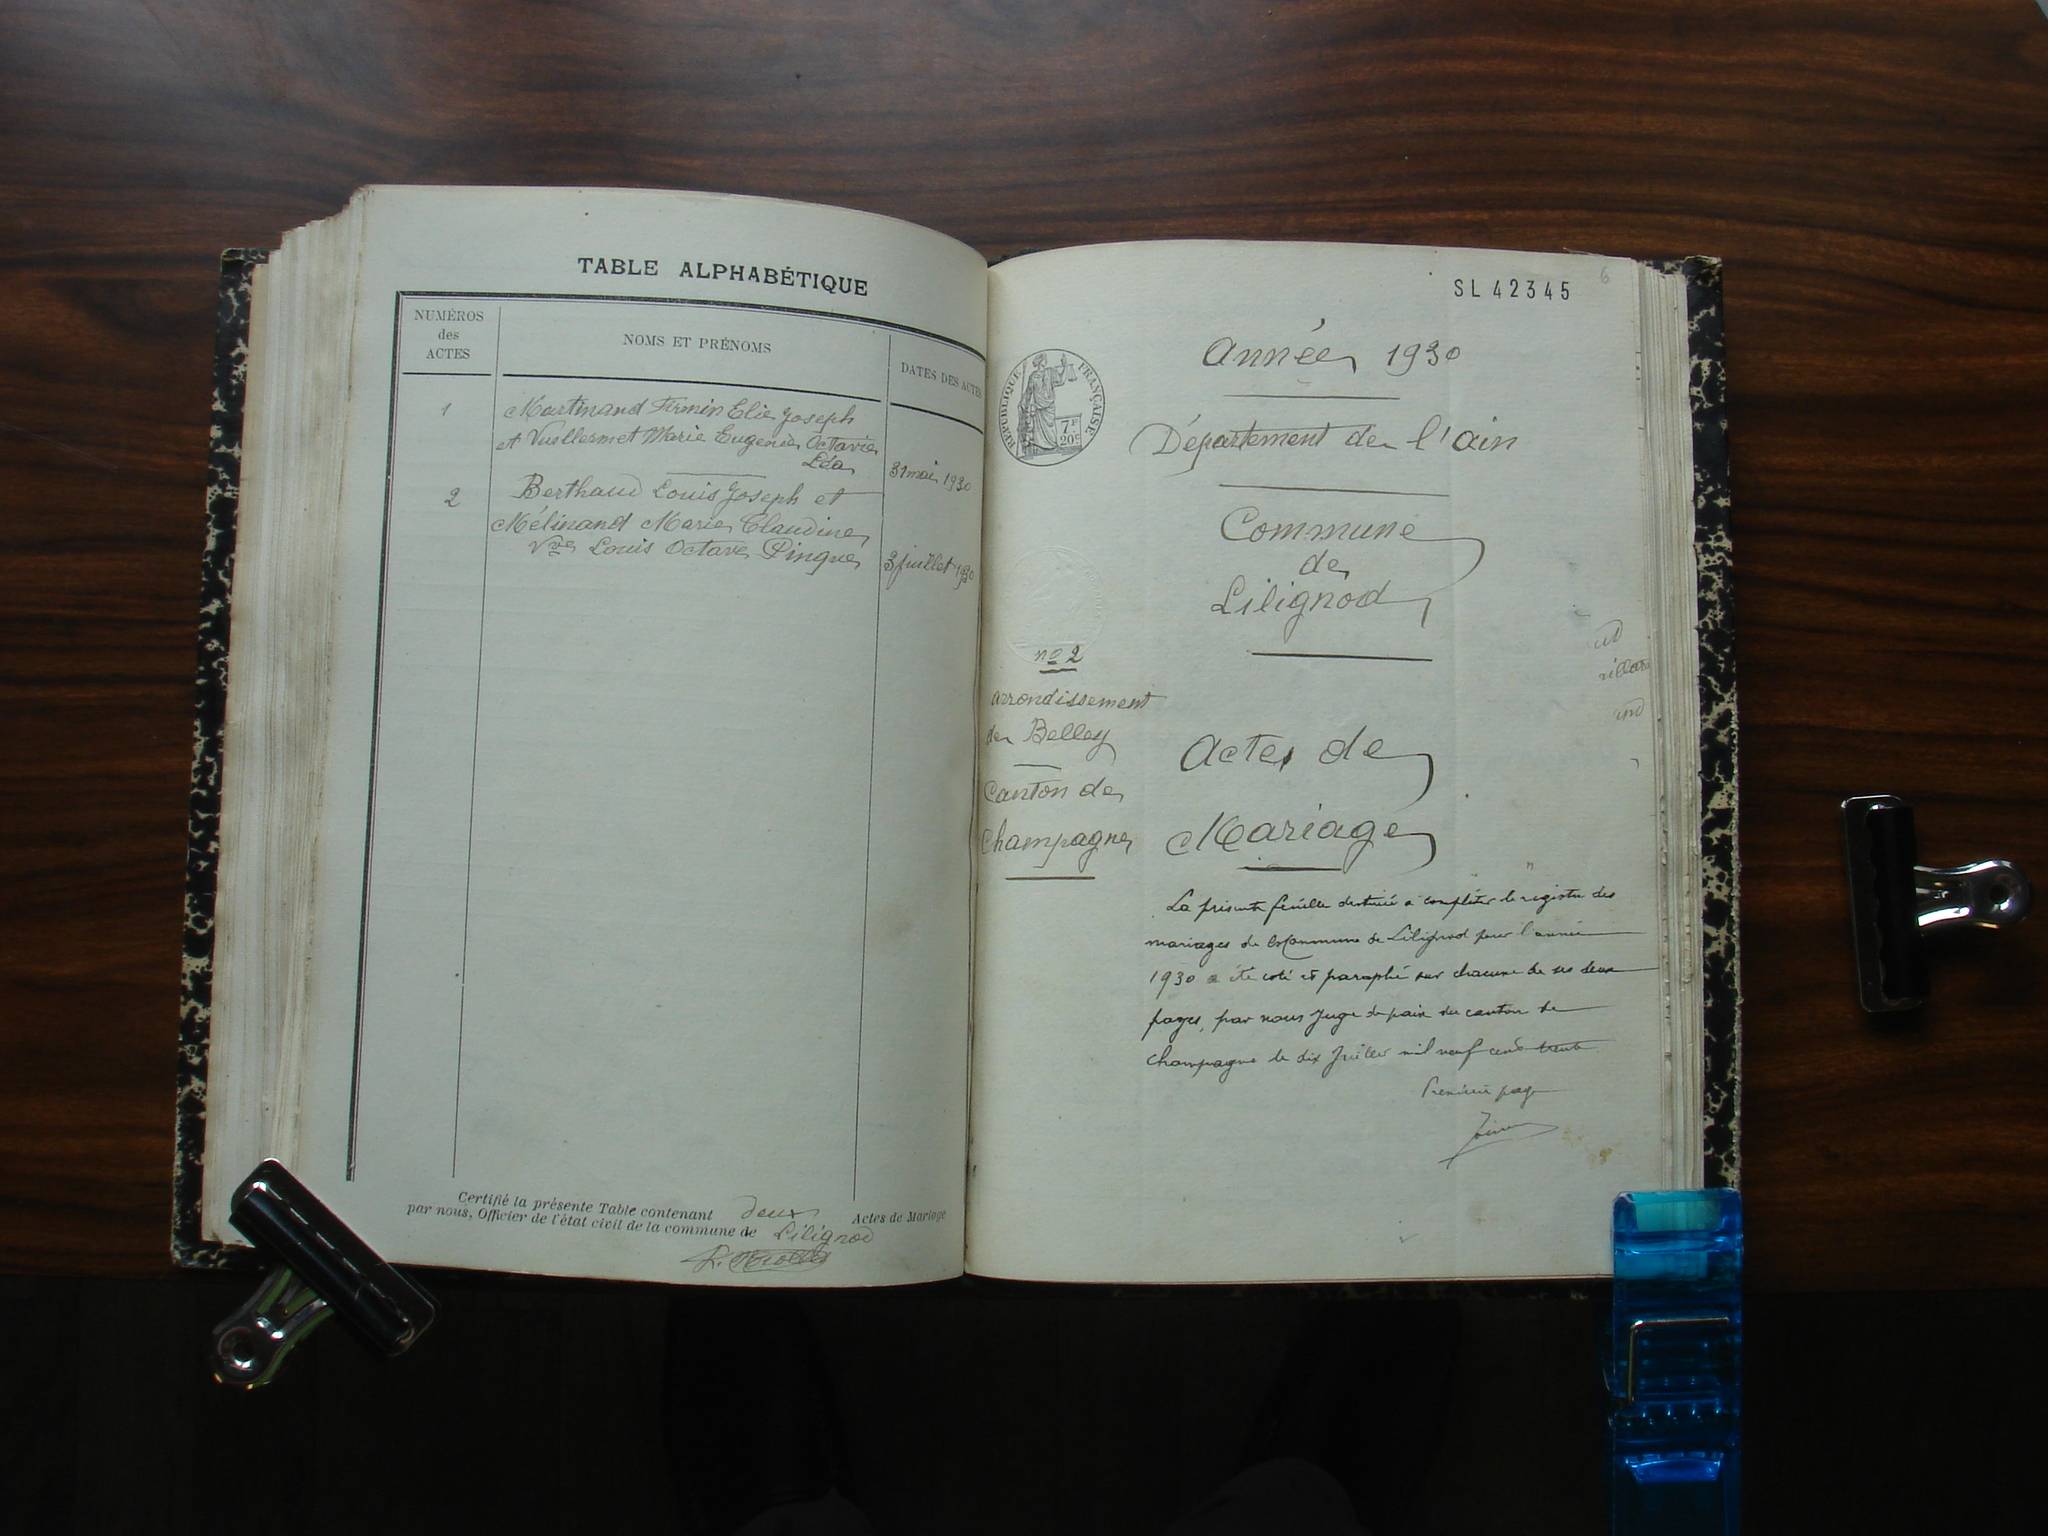 TABLE ALPHABÉTIQUE
NUMÉROS
des
ACTES
NOMS ET PRÉNOMS
DATES DES ACTES
1
Martinand Firmin Elie Joseph
et Vuillermet Marie Eugénie Octavie
Léa
31 mai 1930
2
Berthaud Louis Joseph et
Mélinand Marie Claudine
Vve Louis Octave Pingue
3 juillet 1930
Certifié la présente Table contenant deux Actes de Mariage
par nous, Officier de l'état civil de la commune de Lilignod
SL 42345
6
Année 1930
RÉPUBLIQUE FRANÇAISE
7F
20c
Département de l'ain
Commune
de
Lilignod
no 2
arrondissement
de Belley
Canton de
Champagne
Actes de
Mariage
La présente feuille destinée à compléter le registre des
mariages de la Commune de Lilignod pour l'année
1930 a été coté et paraphé sur chacune de ses deux
pages, par nous Juge de paix du canton de
champagne le dix Juillet mil neuf cent trente
Première page